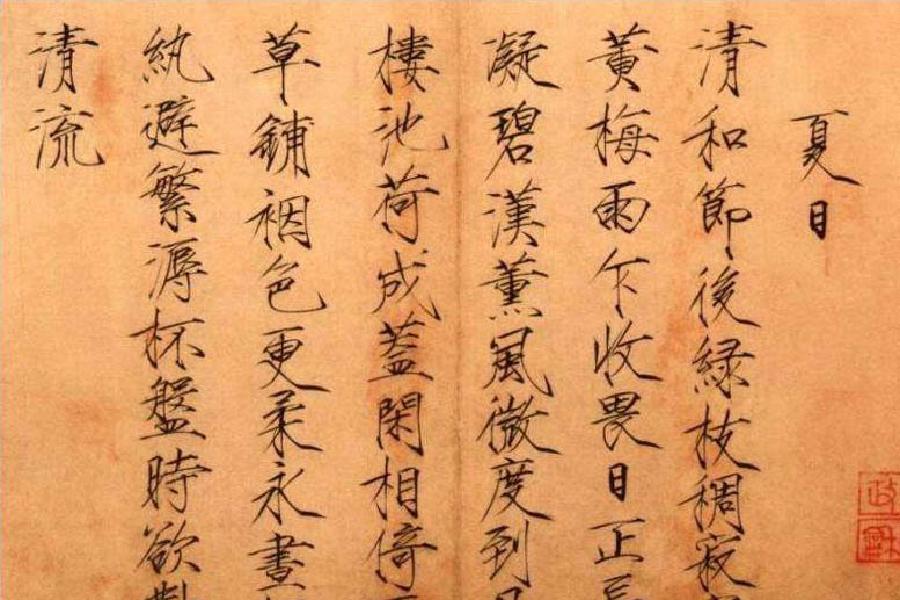 夏日
清和節後綠枝稠寂
黃梅雨乍收畏日正長
凝碧漢薰風微度到
樓池荷成蓋閑相倚
草鋪裀色更柔永晝
紈避繁溽杯盤時欲對
清流
政龢